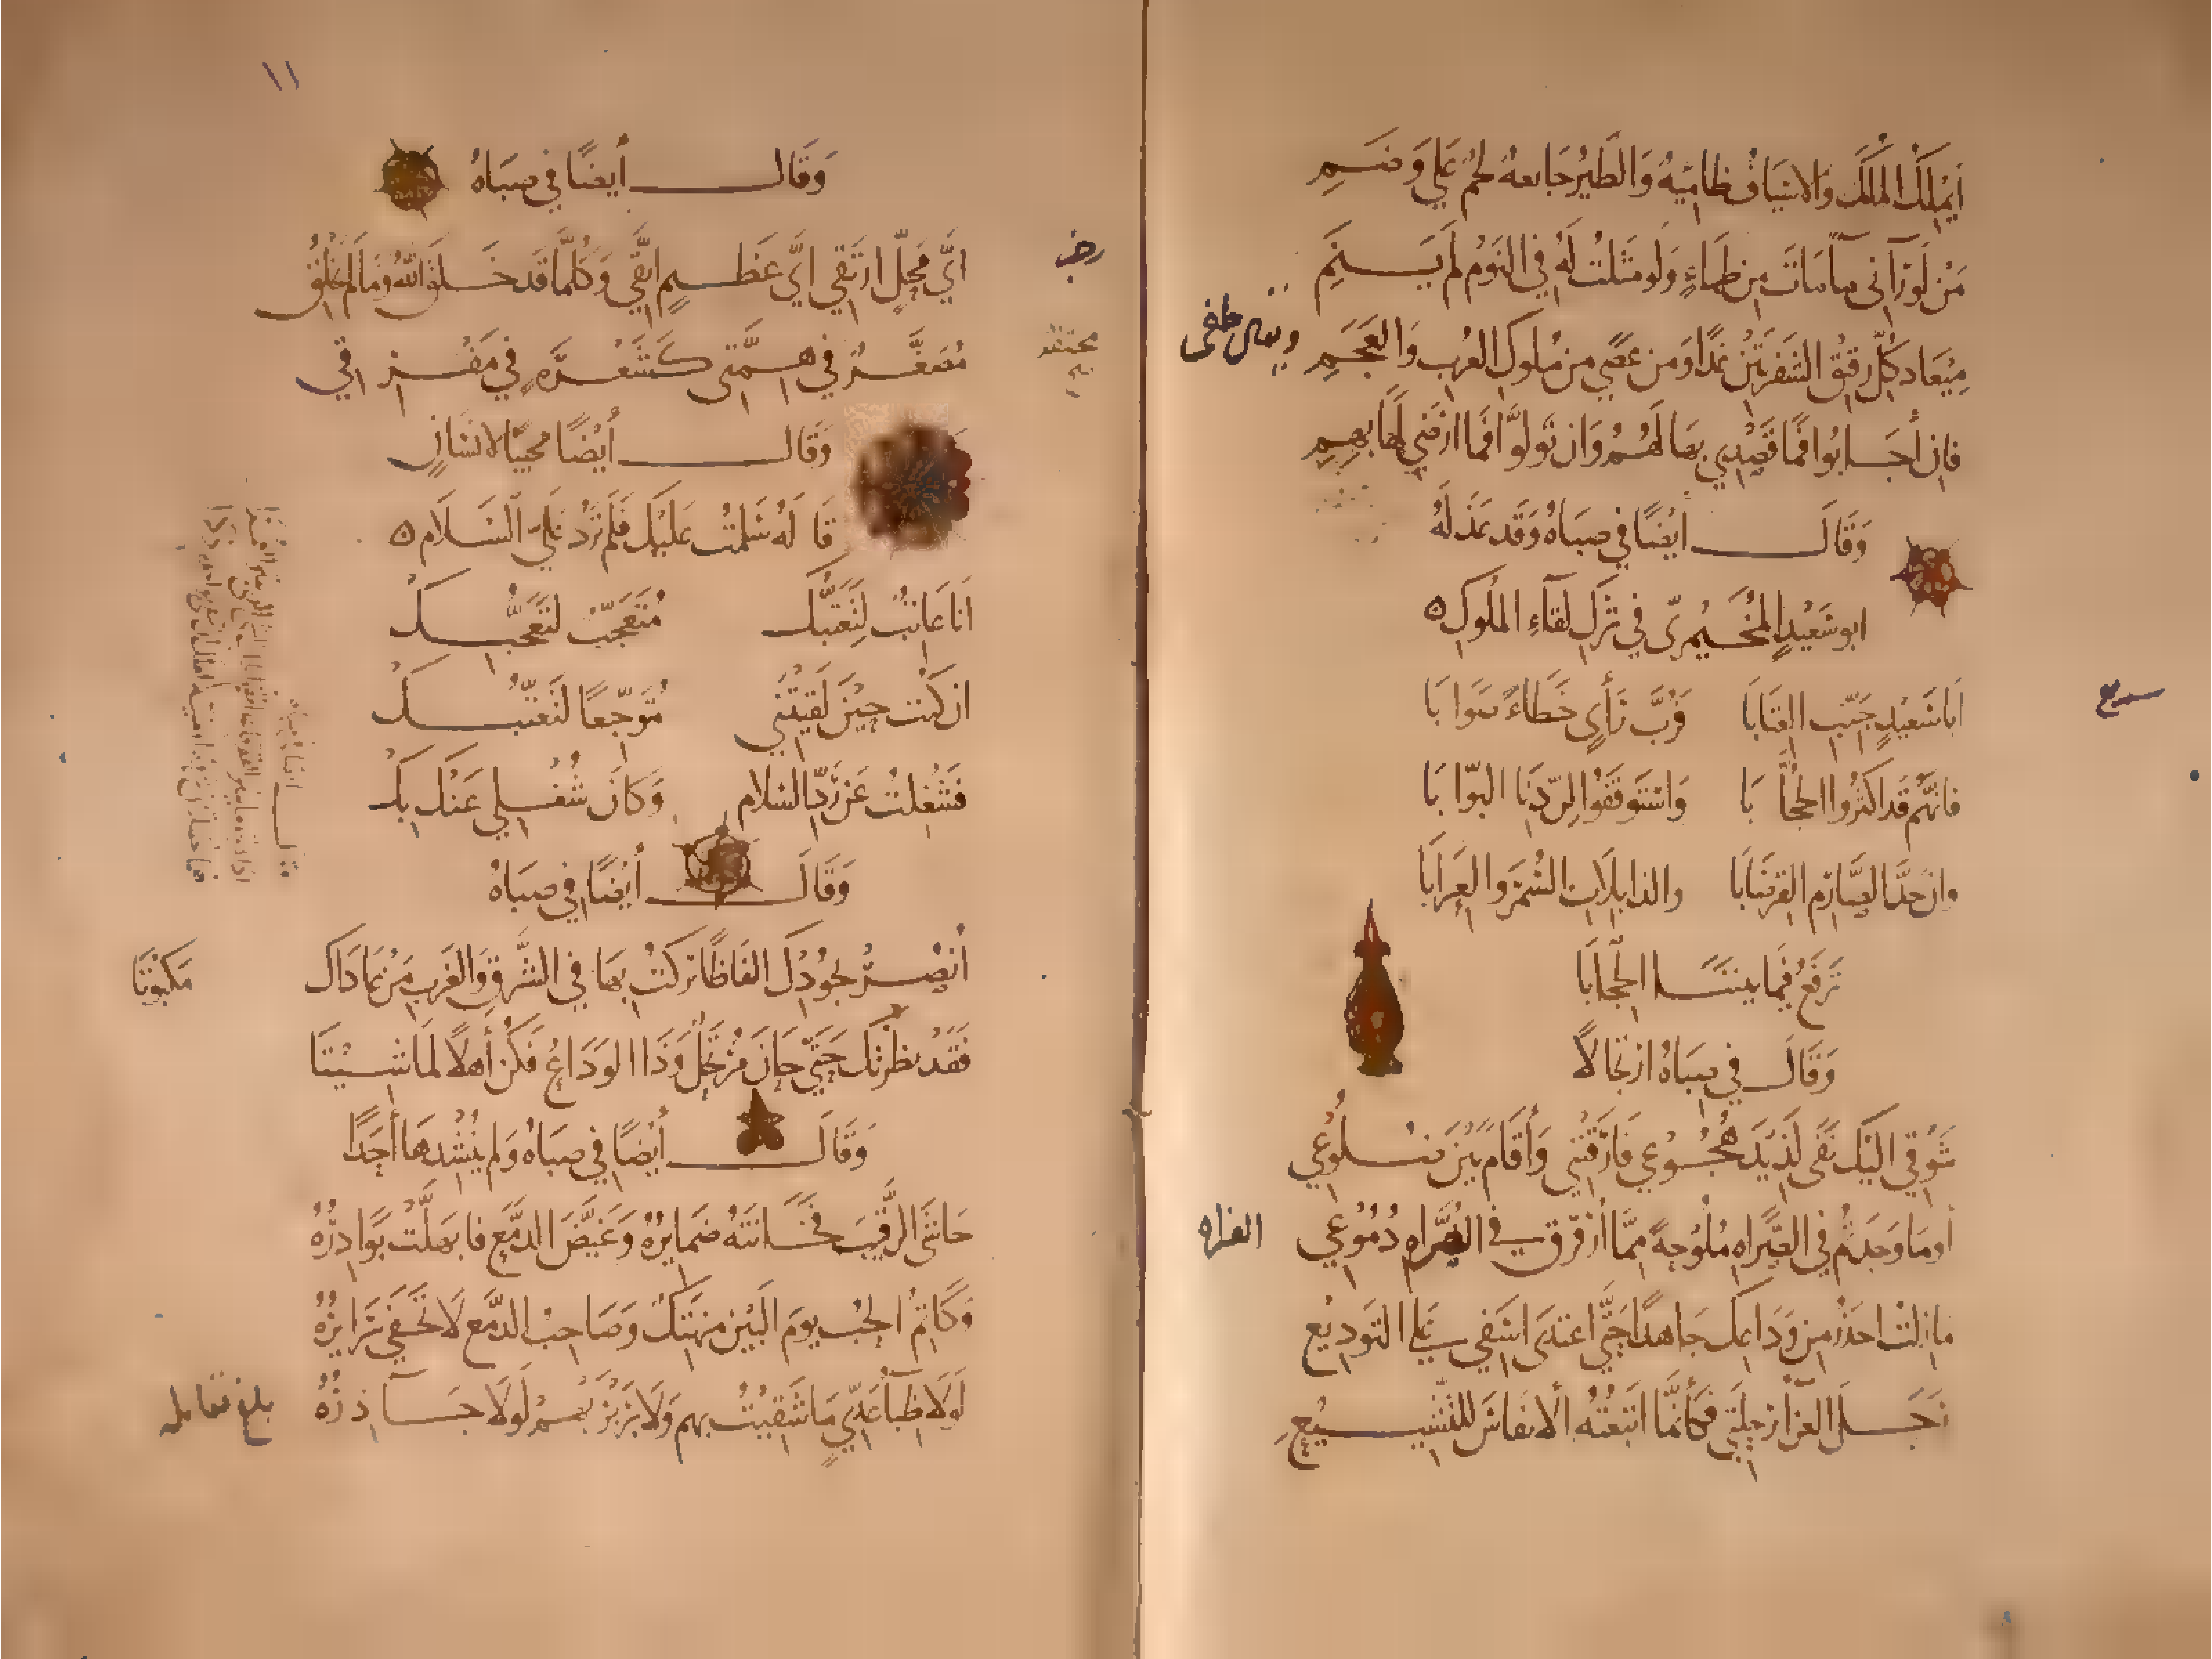 أَيَمْلِكُ الْمُلْكَ وَالاسْيَافُ ظامِيَةٌ وَالطَّيْرُ جَايعةٌ لحمٌ عَلى وَضَمِ
مَنْ لَوْ رَآنى مآ مَاتَ مِن ظَمَاءٍ وَلَو مَثَلْتُ لَهُ فِي النَوْمِ لَمْ يَنَمِ
مِيْعَادُ كُلِّ رَقِيْقِ الشَفْرَتَيْنِ غَدًا وَمَن عَصَى مِن مُلوكِ العُربِ وَالعَجَمِ
فان أجَابُوا فَمَا قَصْدِي بِهَا لَهُمُ وَان تَولَّوْا فَمَا ارْضَى لَهَا بِهِمِ
وَقَالَ أيْضًا في صِبَاهُ وَقَد عَذَلَهُ
ابو سَعِيْدٍ المُخَيْمِرِىّ في تَرْكِ لقَآءِ المُلوكِ ٥
أبَا سَعِيْدٍ جَنِّبِ العِتَابَا فَرُبَّ رَأيٍ خَطَاءً صَوَابَا
فانَّهُم قَد اكثَرُوا الحُجَّابَا وَاسْتَوقَفُوا لِرَدِّنَا البَوّابَا
وانَّ حَدَّ الصَّارِم القِرضَابَا والذابِلَاتِ السُّمْرَ وَالعِرَابَا
تَرفَعُ فِيمَا بيننَا الحِجَابَا
وَقَالَ في صِبَاهُ ارْتجالًا
شَوْقي الَيْكَ نَفَى لَذِيْذَ هُجُوْعِي فَارَقْتَنِي وَأقَامَ بَيْنَ ضُلوعِي
أوَمَا وَجَدتُم في الصَّراهِ مُلوحةً مِمَّا أُرَقْرِقُ في الفُراهِ دُمُوعِي
ما زِلْتُ احذَرُ مِن وَدَاعِكَ جَاهدًا حَتَّى اغتدَى اسَفِي عَلى التَوديْعِ
رَحَلَ العزآءُ برِحلَتي فكَأنَّمَا اتبَعْتُهُ الانفاسَ للتَشْيِيْعِ
ويعاى
سريع
الفراه
١١
وَقَال أيضًا في صِبَاهُ
ايَّ مَحِلٍّ ارتَقي ايَّ عَظيمٍ اتَّقِي وَكُلّمَا قَد خَلَقَ اللهُ ومَا لَم يَخْلُقِ
مُصَغَّرٌ في هِمَّتى كَشَعْرَةٍ في مَفْرِقي
وَقَال أيْضًا مُحيبًا لانسَانٍ
قا لَهُ سَلمْتُ عَلَيْكَ فَلَم تَرُدَّ عَلَيَّ السَلَام ٥
انا عَاتبٌ لِتَعَتُّبِكْ مُتَعَجِّبٌ لتَعَجُّبِكْ
ان كُنتُ حِيْنَ لَقِيْتَنِي مُتَوَجِّعًا لتَغَيُّبِكْ
فَشُغِلْتُ عَن رَدِّ السَلام وَكَانَ شُغلِي عَنْكَ بِكْ
وَقَالَ أيْضًا في صِبَاهُ
أُنْصُرْ بجُوْدِكَ الفَاظًا تركتُ بِهَا في الشَّرقِ وَالغَربِ مَن عَادَاكَ مَكبُوتَا
فَقَدْ نظَرْتُكَ حَتَّى حَانَ مُرْتَحَلٌ وَذَا الوَدَاعُ فَكُن أهلًا لمَا شِيْتَا
وَقَالَ أيْضًا في صِبَاهُ وَلم يُنْشِدهَا أحَدًا
حَاشَى الرَقِيْبَ فَخَانَتهُ ضَمايرُهُ وَغَيَّضَ الدَمْعَ فانهَلَّتْ بَوَادِرُهُ
وَكَاتِمُ الحُبِّ يومَ البَيْنِ منهَتِكٌ وَصَاحِبُ الدَمْعِ لَا تَخْفَى سَرَايرُهُ
لَولَا ظِبَاءُ عَدِيٍّ مَا شَقِيْتُ بهم وَلَا بِرَبْرَبِهِمْ لَولَا جَآذِرُهُ
رجز
بلغ مقابله